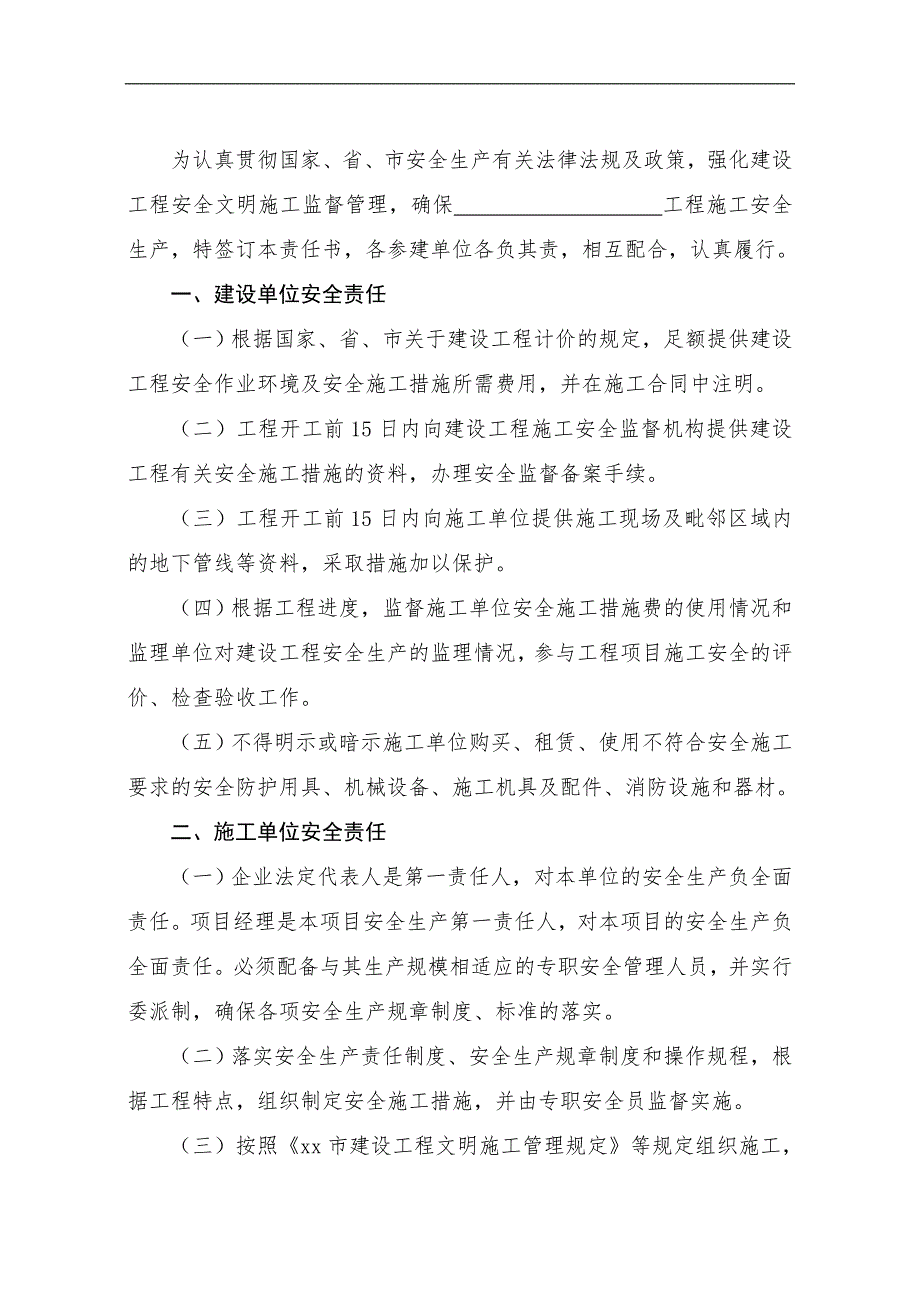 为认真贯彻国家、省、市安全生产有关法律法规及政策，强化建设
工程安全文明施工监督管理，确保____________________工程施工安全
生产，特签订本责任书，各参建单位各负其责，相互配合，认真履行。
一、建设单位安全责任
（一）根据国家、省、市关于建设工程计价的规定，足额提供建设
工程安全作业环境及安全施工措施所需费用，并在施工合同中注明。
（二）工程开工前15日内向建设工程施工安全监督机构提供建设
工程有关安全施工措施的资料，办理安全监督备案手续。
（三）工程开工前15日内向施工单位提供施工现场及毗邻区域内
的地下管线等资料，采取措施加以保护。
（四）根据工程进度，监督施工单位安全施工措施费的使用情况和
监理单位对建设工程安全生产的监理情况，参与工程项目施工安全的评
价、检查验收工作。
（五）不得明示或暗示施工单位购买、租赁、使用不符合安全施工
要求的安全防护用具、机械设备、施工机具及配件、消防设施和器材。
二、施工单位安全责任
（一）企业法定代表人是第一责任人，对本单位的安全生产负全面
责任。项目经理是本项目安全生产第一责任人，对本项目的安全生产负
全面责任。必须配备与其生产规模相适应的专职安全管理人员，并实行
委派制，确保各项安全生产规章制度、标准的落实。
（二）落实安全生产责任制度、安全生产规章制度和操作规程，根
据工程特点，组织制定安全施工措施，并由专职安全员监督实施。
（三）按照《xx市建设工程文明施工管理规定》等规定组织施工，